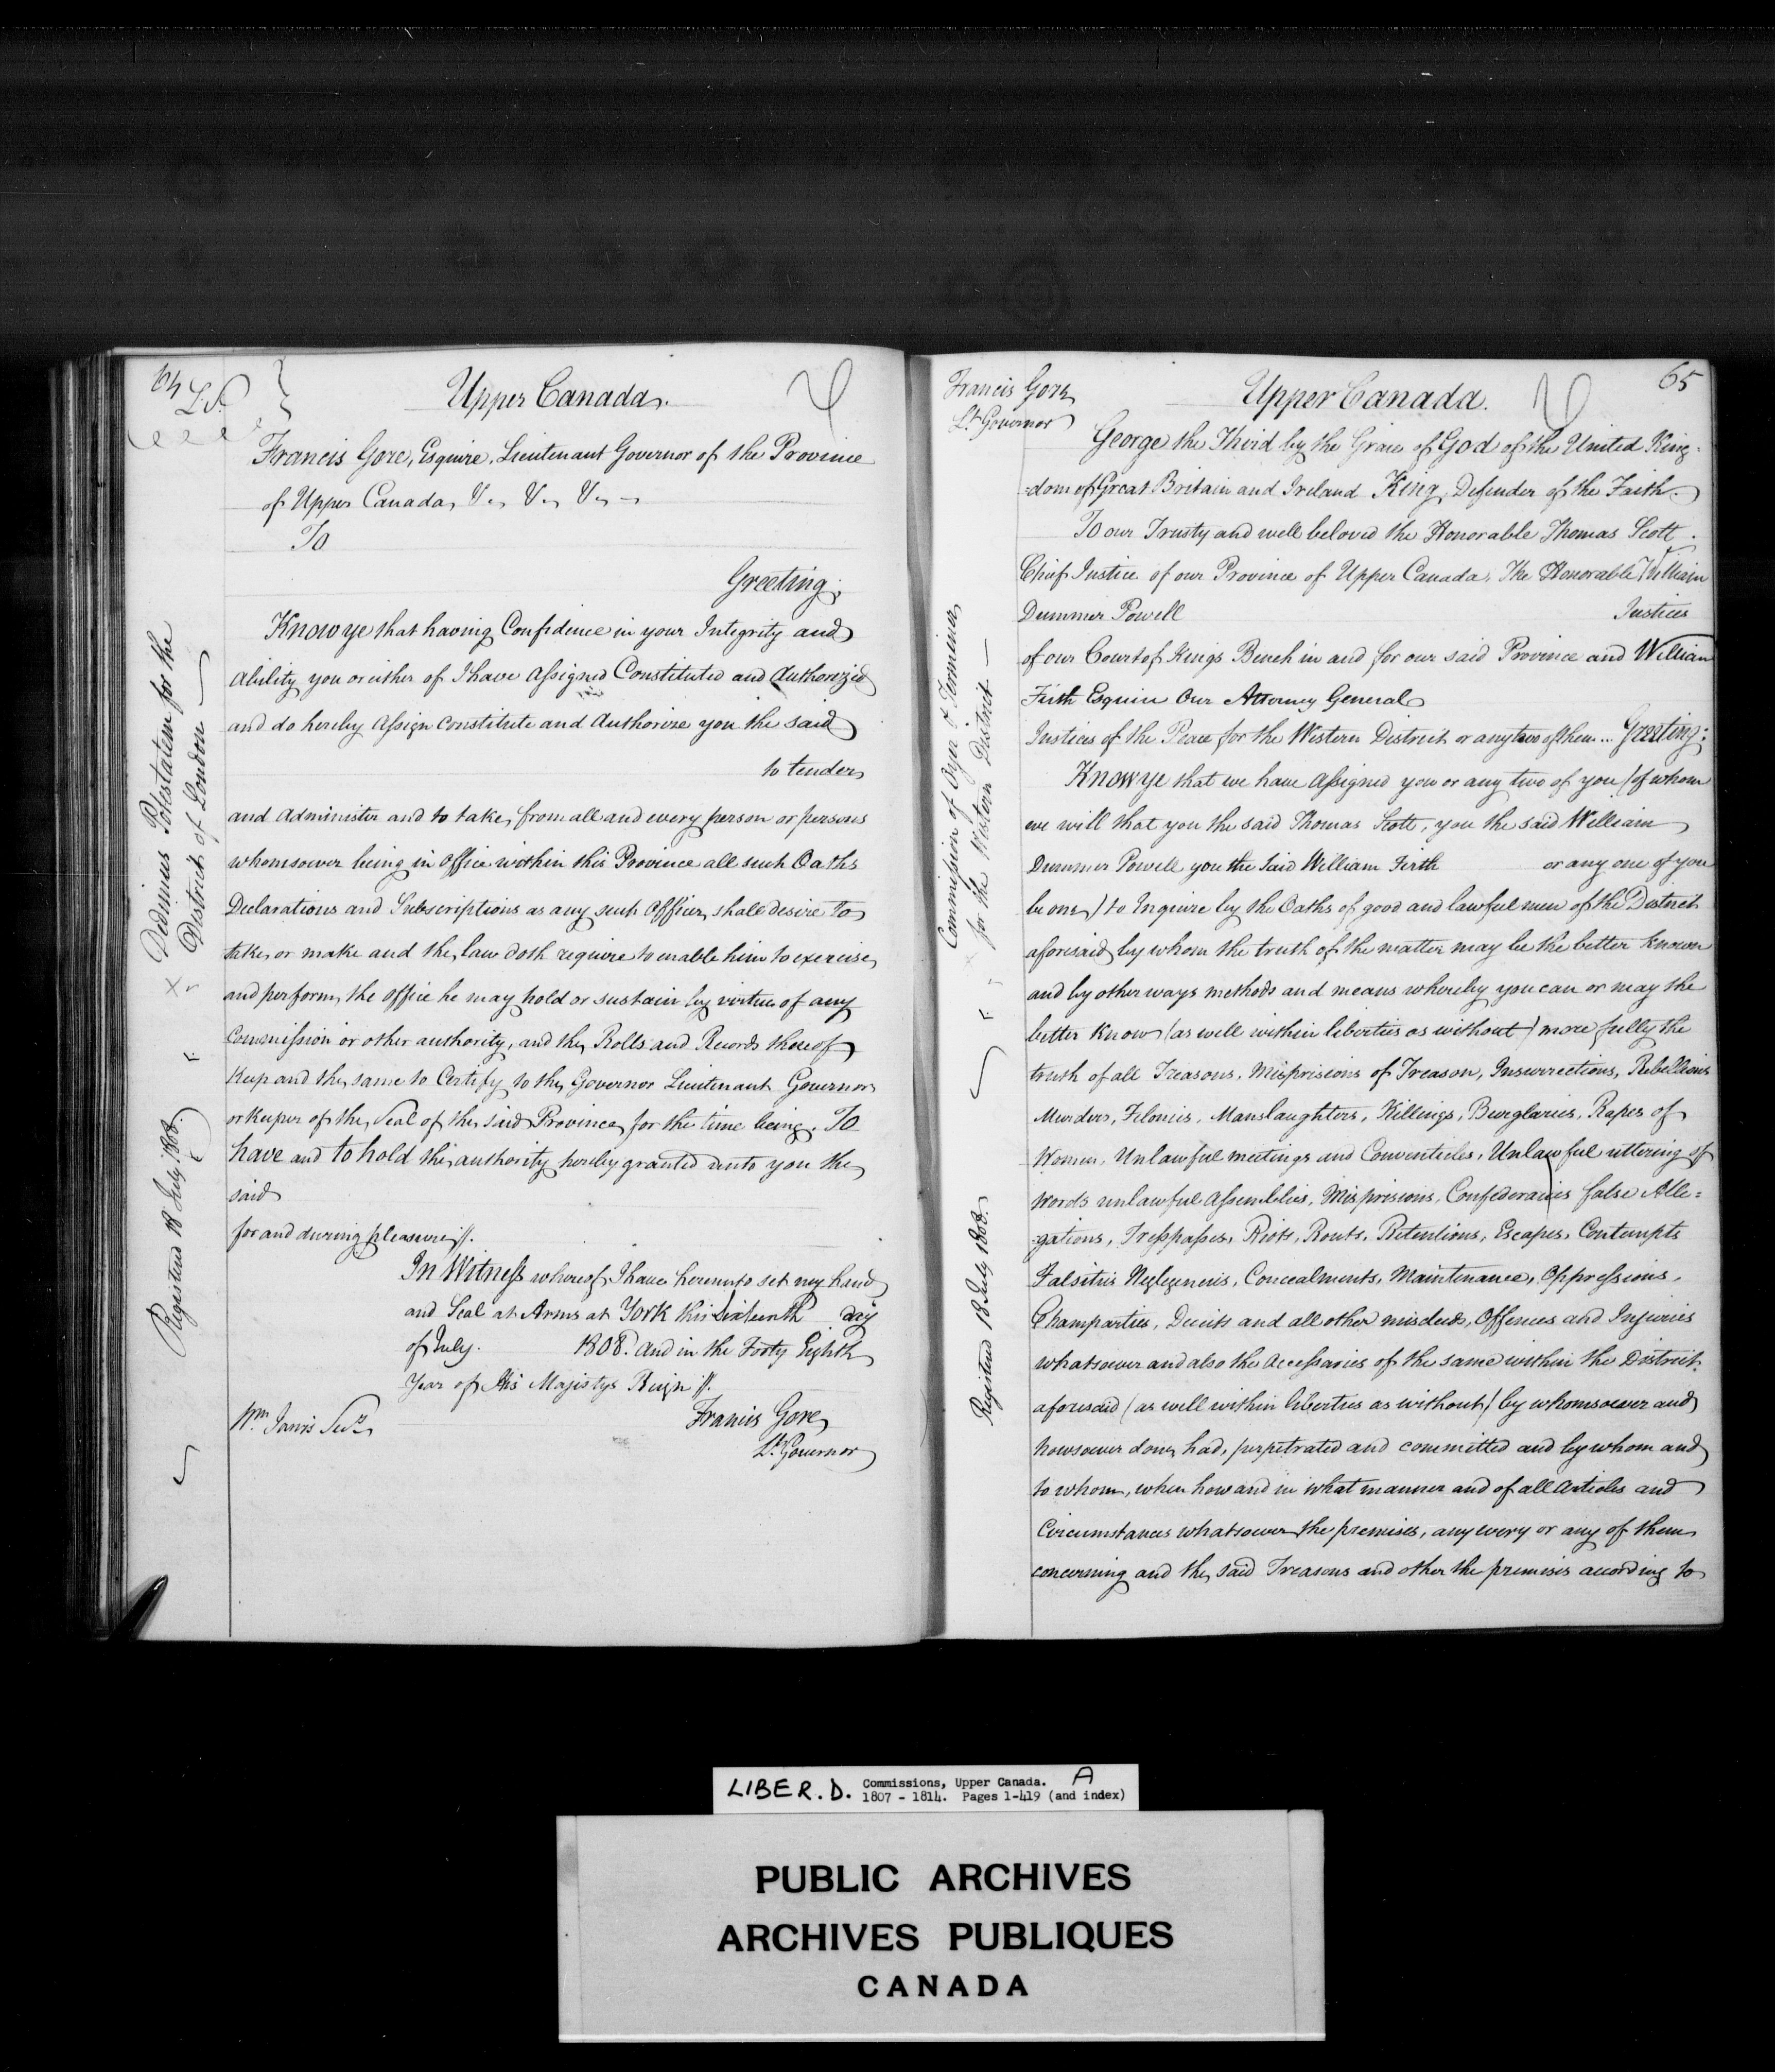 64
L.S.
Upper Canada.
Francis Gore, Esquire, Lieutenant Governor of the Province
of Upper Canada, &c, &c, &c, —
To
Greeting;
Know ye that having Confidence in your Integrity and
ability you or either of I have assigned Constituted and Authorized
and do hereby assign constitute and Authorize you the said
to tender
and administer and to take, from all and every person or persons
whomsoever being in office within this Province all such Oaths
Declarations and Subscriptions as any such Officer, shall desire to
take, or make and the, law doth require to enable him to exercise,
and perform, the office he may hold or sustain by virtue of any
Commission or other authority, and the, Rolls and Records thereof
Keep and the, same to Certify to the, Governor Lieutenant Governor
or Keeper of the, Seal of the, said Province, for the time being. To
have and to hold the, authority hereby granted unto you the,
said
for and during pleasure //.
In Witness whereof, I have hereunto set my hand
and Seal at Arms at York this Sixteenth day
of July. 1808. and in the Forty Eighth
Year of His Majestys Reign //.
Wm. Jarvis Secy.
Francis Gore,
Lt. Governor
Dedimus Potestatem for the
District of London —
Registered 18 July 1808.
65
Francis Gore,
Lt. Governor
Upper Canada.
George the Third by the Grace of God of the United King-
=dom of Great Britain and Ireland King, Defender of the Faith.
To our Trusty and well beloved the Honorable Thomas Scott
Chief Justice of our Province of Upper Canada, The Honorable William
Dummer Powell Justices
of our Court of Kings Bench in and for our said Province and William
Firth Esquire Our Attorney General
Justices of the Peace for the Western District or any two of them... Greeting:
Know ye that we have assigned you or any two of you (of whom
we will that you the said Thomas Scott, you the said William
Dummer Powell you the Said William Firth or any one of you
be one,) to Inquire by the Oaths of good and lawful men of the District
aforesaid, by whom the truth of the matter may be the better known
and by other ways methods and means whereby you can or may the
better know (as well within liberties as without) more fully the
truth of all Treasons, Misprisions of Treason, Insurrections, Rebellions
Murders, Felonies, Manslaughters, Killings, Burglaries, Rapes of
Women, Unlawful meetings and Conventicles, Unlawful uttering of
words unlawful assemblies, Misprisions, Confederacies false Alle=
-gations, Trespasses, Riots, Routs, Retentions, Escapes, Contempts
Falsities Negligences, Concealments, Maintenance, Oppressions,
Champarties, Deceits and all other misdeeds, Offences and Injuries
whatsoever and also the accessaries of the same within the District
aforesaid (as well within liberties as without) by whomsoever and
howsoever done, had, perpetrated and committed and by whom and
to whom, when how and in what manner and of all articles and
Circumstances whatsoever, the premises, any every or any of them
concerning and the, said Treasons and other the premises according to
Commission of Oyer & Terminer,
for the Western District —
Registered 18 July 1808.
LIBER. D. Commissions, Upper Canada. A
1807 - 1814. Pages 1-419 (and index)
PUBLIC ARCHIVES
ARCHIVES PUBLIQUES
CANADA